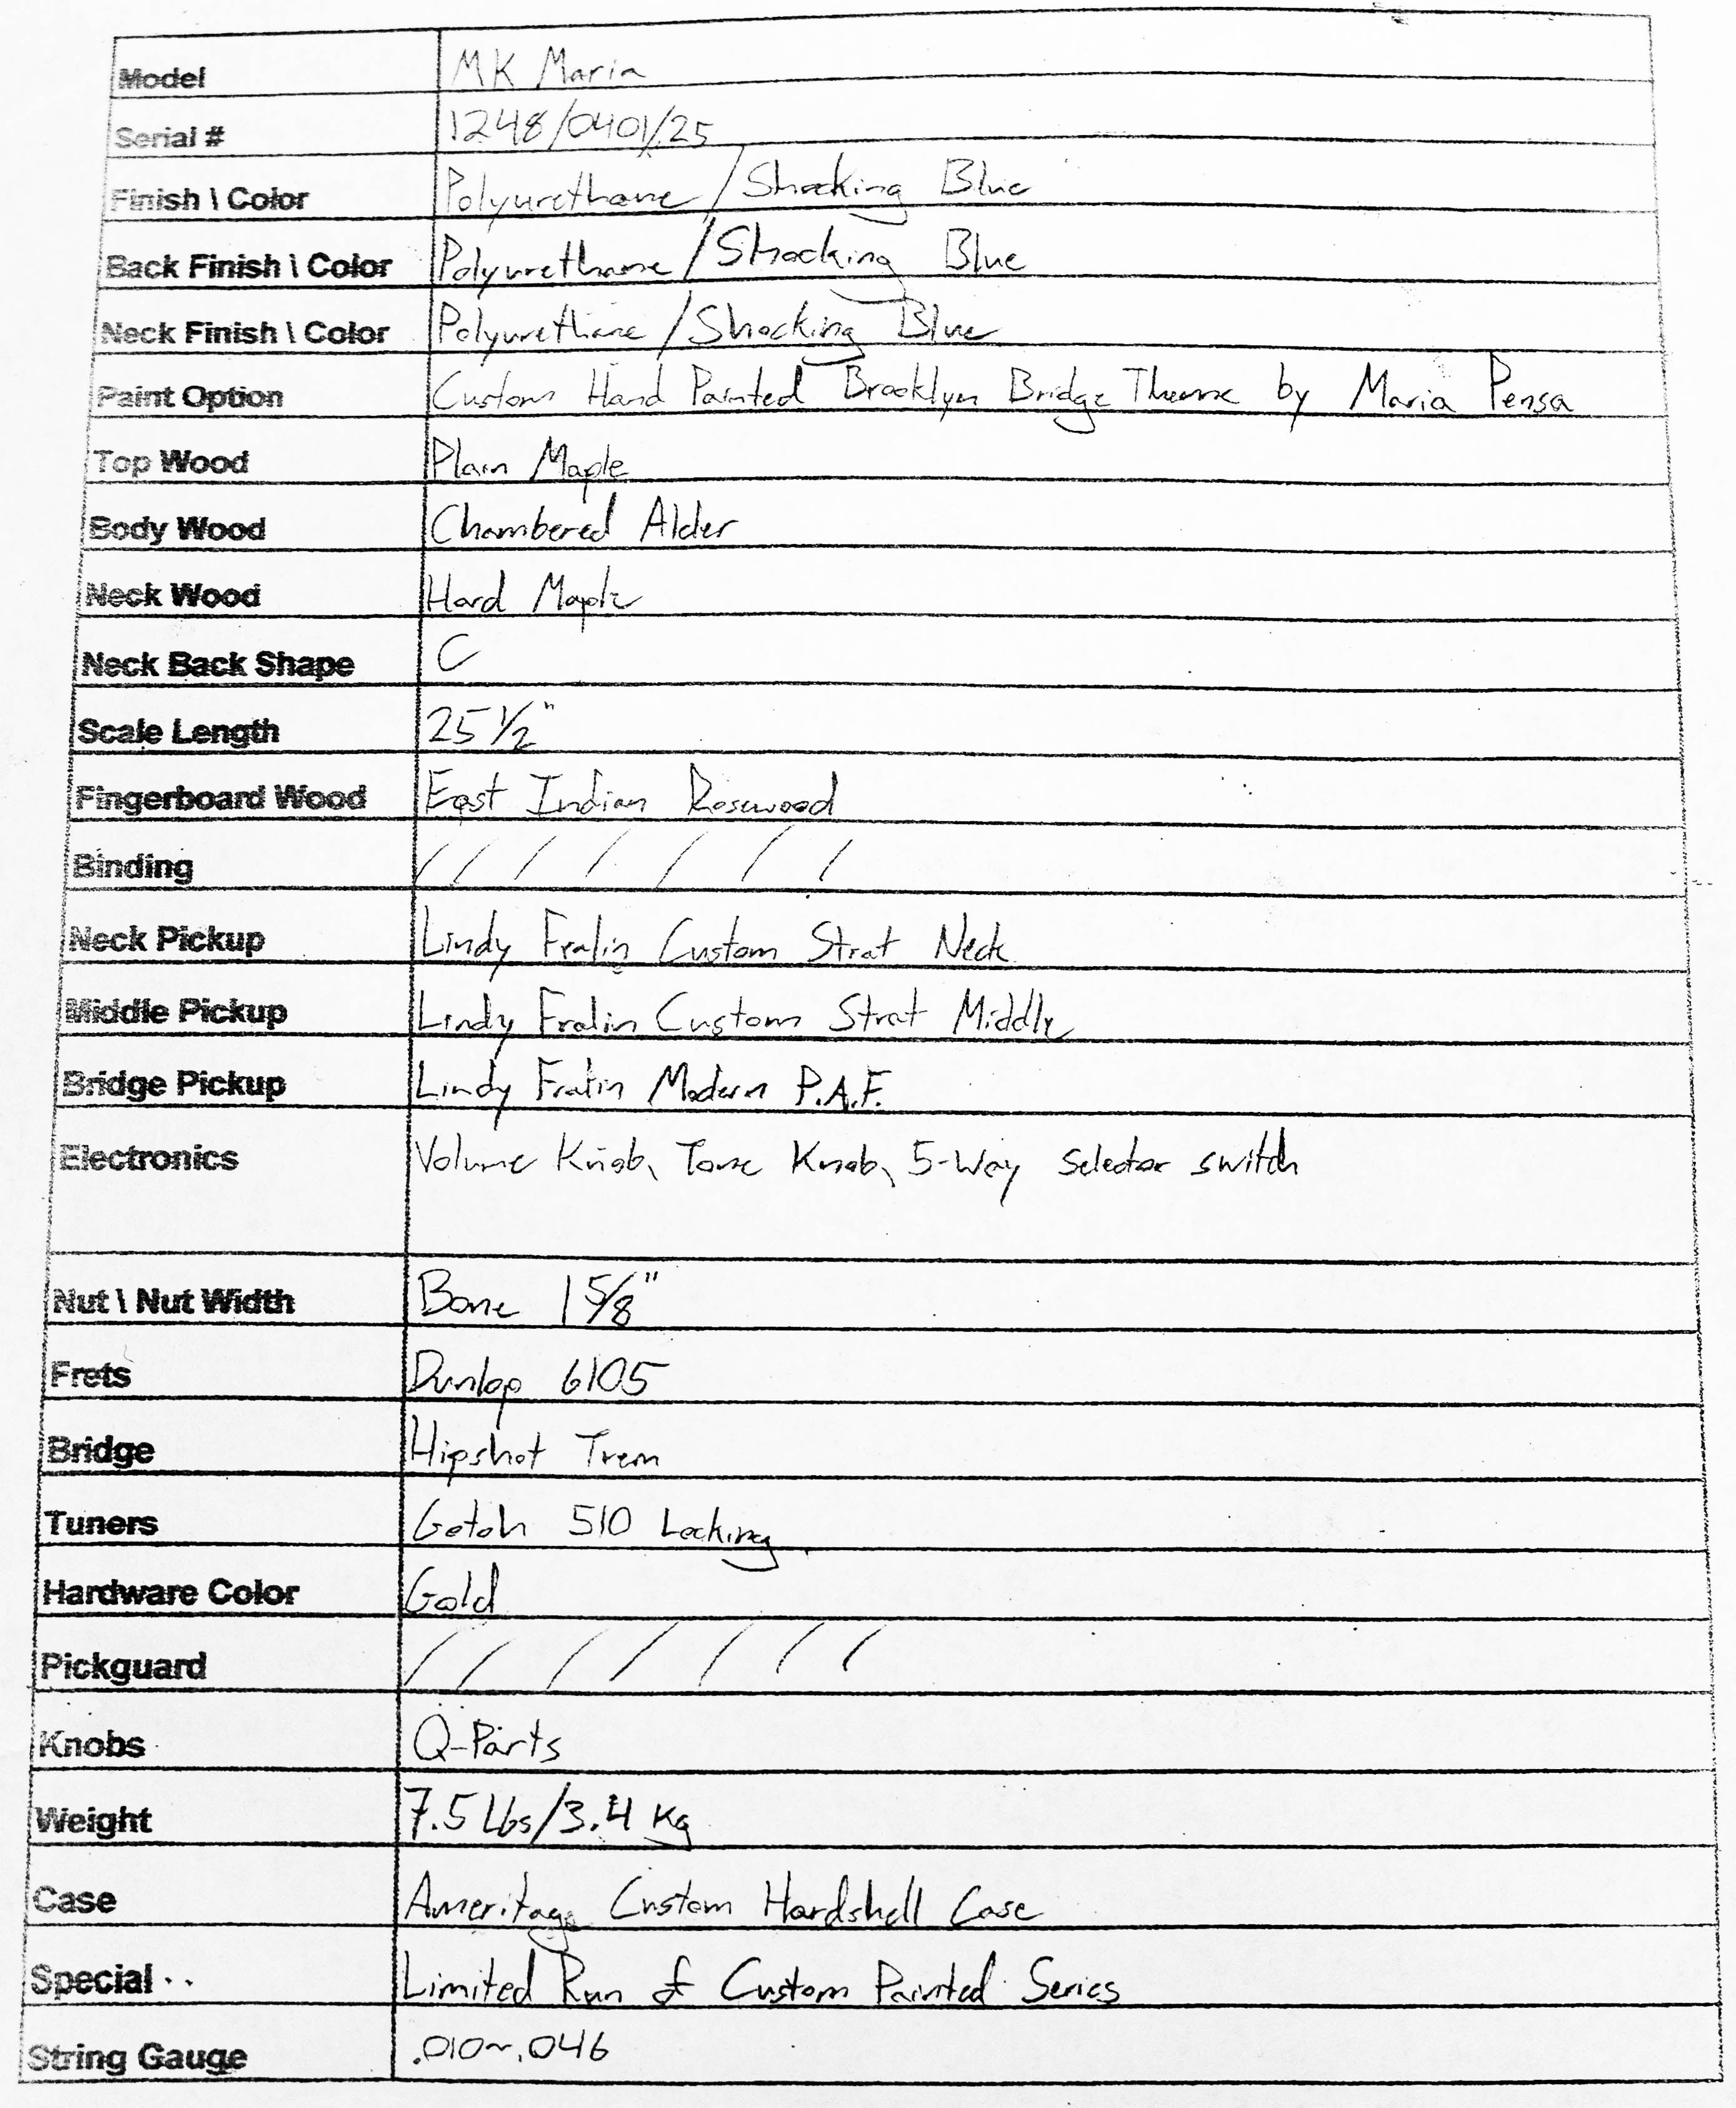 Model MK Maria
Serial # 1248/0401/25
Finish \ Color Polyurethane/Shocking Blue
Back Finish \ Color Polyurethane/Shocking Blue
Neck Finish \ Color Polyurethane/Shocking Blue
Paint Option Custom Hand Painted Brooklyn Bridge Theme by Maria Pensa
Top Wood Plain Maple
Body Wood Chambered Alder
Neck Wood Hard Maple
Neck Back Shape C
Scale Length 25 1/2"
Fingerboard Wood East Indian Rosewood
Binding / / / / / / /
Neck Pickup Lindy Fralin Custom Strat Neck
Middle Pickup Lindy Fralin Custom Strat Middle
Bridge Pickup Lindy Fralin Modern P.A.F.
Electronics Volume Knob, Tone Knob, 5-Way Selector switch
Nut \ Nut Width Bone 1 5/8"
Frets Dunlop 6105
Bridge Hipshot Trem
Tuners Gotoh 510 Locking
Hardware Color Gold
Pickguard / / / / / / /
Knobs Q-Parts
Weight 7.5 Lbs/3.4 Kg
Case Ameritage Custom Hardshell Case
Special Limited Run of Custom Painted Series
String Gauge .010~.046